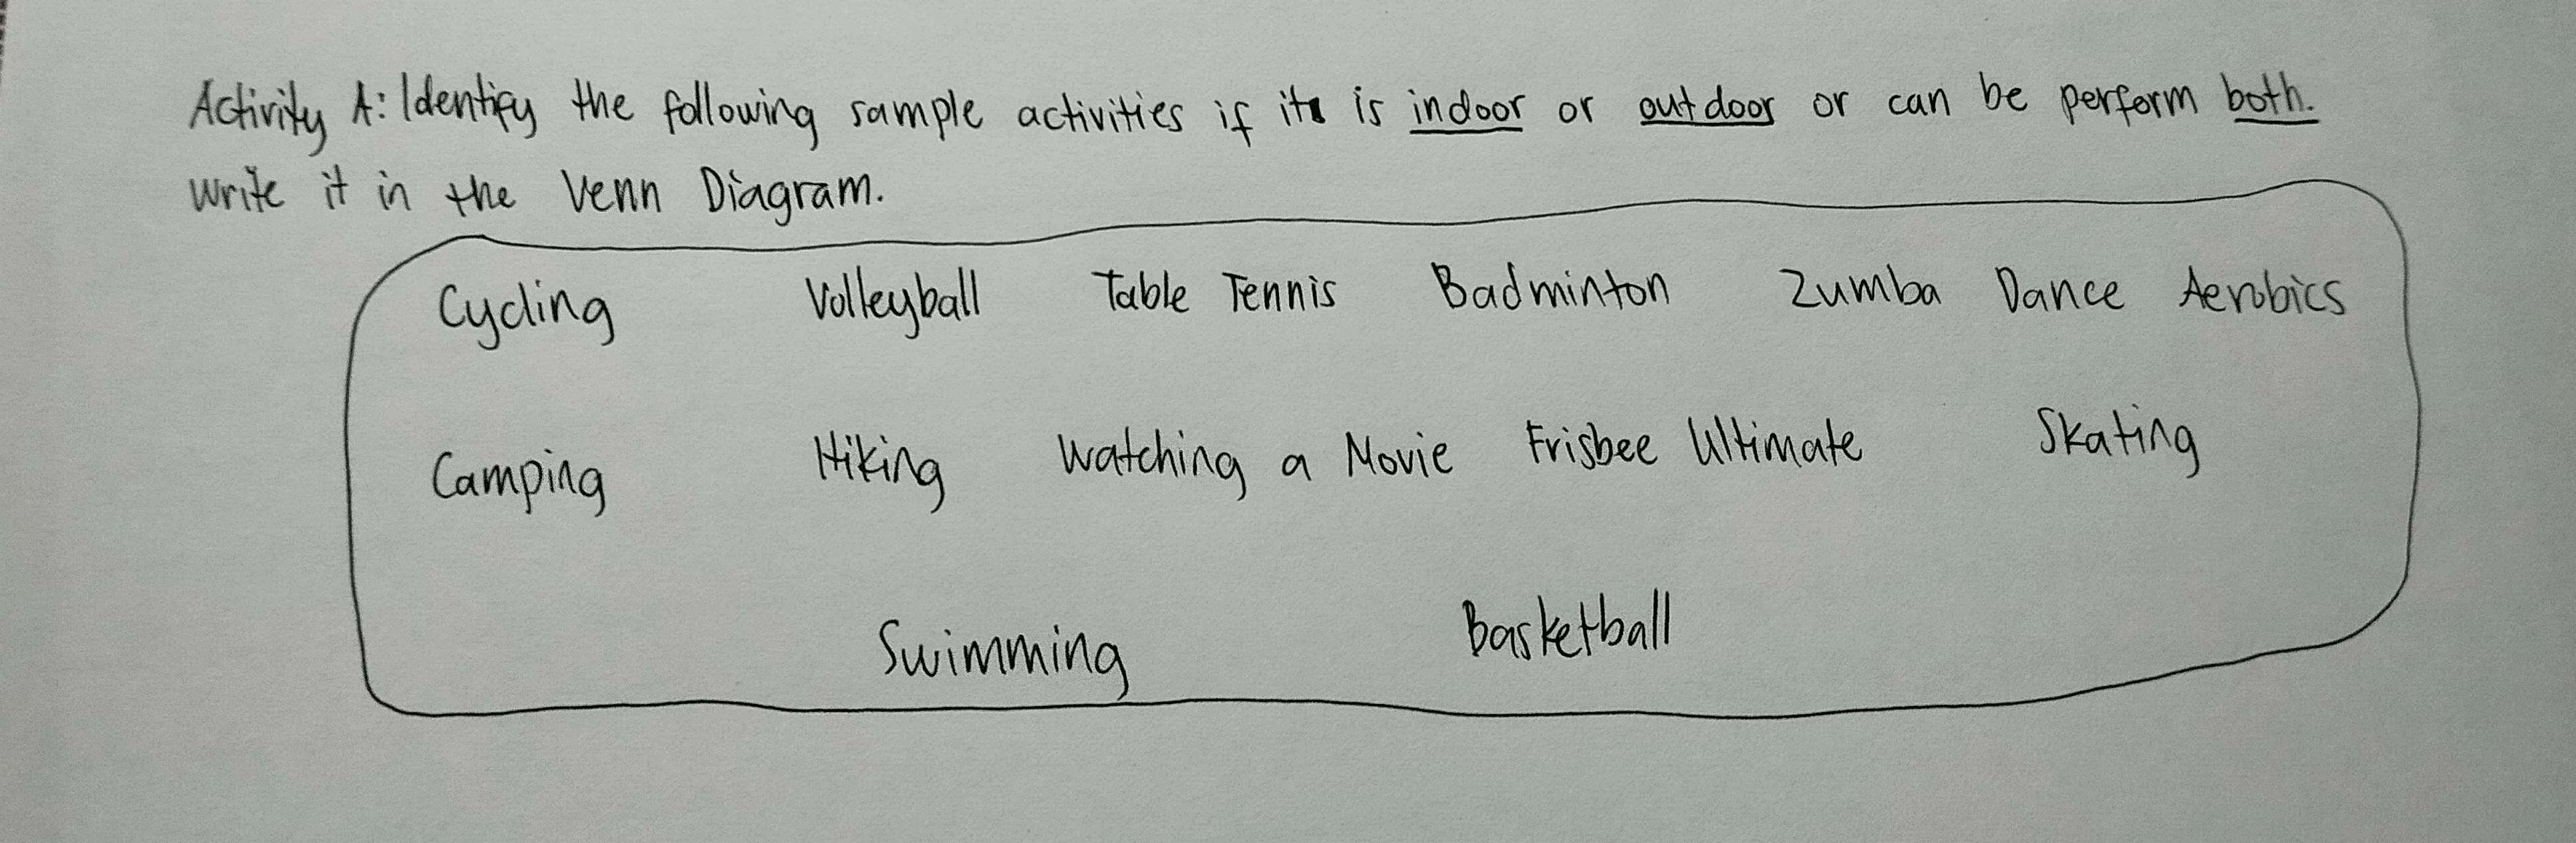 Activity A: Identify the following sample activities if it is indoor or outdoor or can be perform both.
Write it in the Venn Diagram.
Cycling Volleyball Table Tennis Badminton Zumba Dance Aerobics
Camping Hiking Watching a Movie Frisbee Ultimate Skating
Swimming Basketball